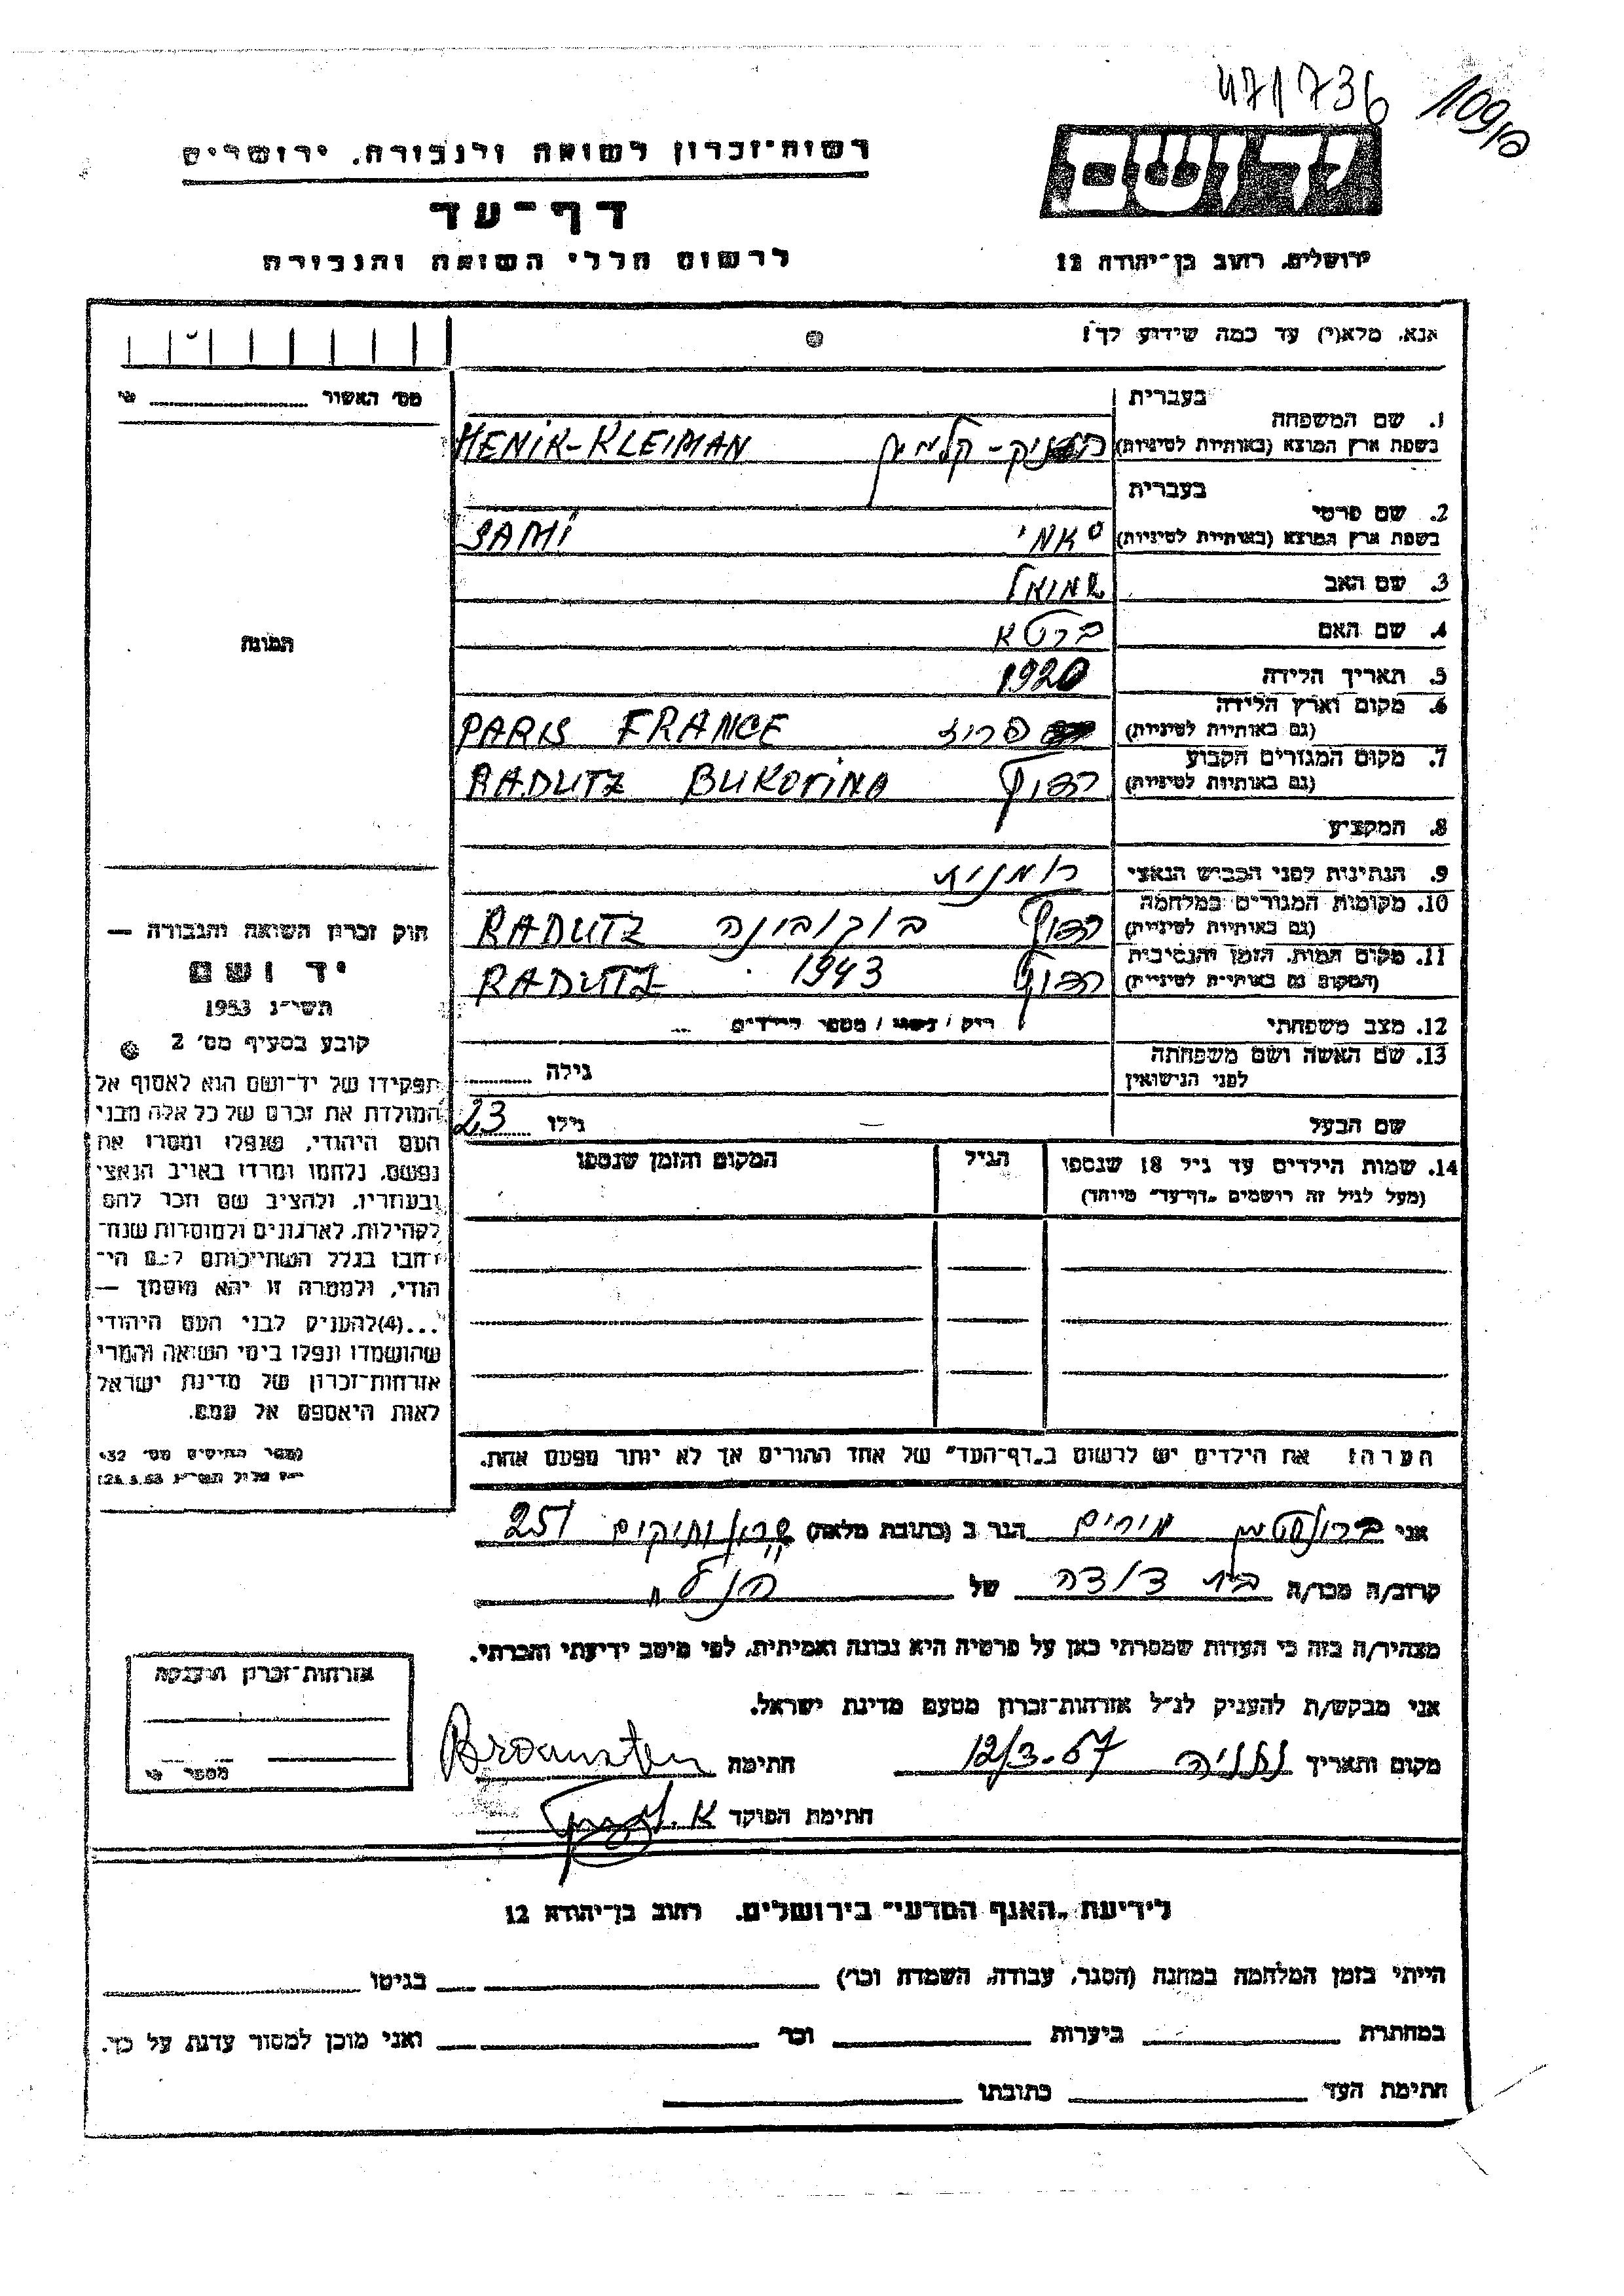 471736
109/ס
רשות-זכרון לשואה ולגבורה, ירושלים
יד ושם
דף-עד
לרשום חללי השואה והגבורה
ירושלים, רחוב בן-יהודה 12
אנא, מלא(י) עד כמה שידוע לך!
מס' האשור
1. שם המשפחה
בעברית
בשפת ארץ המוצא (באותיות לטיניות)
הניק-קלמין HENIK-KLEIMAN
2. שם פרטי
בעברית
בשפת ארץ המוצא (באותיות לטיניות)
סאמי SAMI
3. שם האב שמואל
4. שם האם ברטא
5. תאריך הלידה 1920
6. מקום וארץ הלידה
(גם באותיות לטיניות)
פריז PARIS FRANCE
7. מקום המגורים הקבוע
(גם באותיות לטיניות)
רדוץ RADUTZ BUKOVINA
8. המקצוע
9. הנתינות לפני הכבוש הנאצי רומנית
10. מקומות המגורים במלחמה
(גם באותיות לטיניות)
רדוץ בוקובינה RADUTZ
11. מקום המות, הזמן והנסיבות
(המקום גם באותיות לטיניות)
רדוץ 1943 RADUTZ
12. מצב משפחתי רווק / נשוי / מספר הילדים
13. שם האשה ושם משפחתה
לפני הנישואין
גילה
שם הבעל — גילו 23
14. שמות הילדים עד גיל 18 שנספו
(מעל לגיל זה רושמים "דף-עד" מיוחד)
הגיל
המקום והזמן שנספו
התמונה
חוק זכרון השואה והגבורה —
יד ושם
תשי"ג 1953
קובע בסעיף מס' 2
תפקידו של יד-ושם הוא לאסוף אל
המולדת את זכרם של כל אלה מבני
העם היהודי, שנפלו ומסרו את
נפשם, נלחמו ומרדו באויב הנאצי
ובעוזריו, ולהציב שם וזכר להם
לקהילות, לארגונים ולמוסדות שנח-
רבו בגלל השתייכותם לעם הי-
הודי, ולמטרה זו יהא מוסמך —
...(4)להעניק לבני העם היהודי
שהושמדו ונפלו בימי השואה והמרי
אזרחות-זכרון של מדינת ישראל
לאות היאספם אל עמם.
הערה: את הילדים יש לרשום ב"דף-העד" של אחד ההורים אך לא יותר מפעם אחת.
אני ברונשטיין מרים הגר ב (כתובת מלאה) שרון ותיקים 251
קרוב/ה מכר/ה בת דודה של הנ"ל
מצהיר/ה בזה כי העדות שמסרתי כאן על פרטיה היא נכונה ואמיתית, לפי מיטב ידיעתי והכרתי.
אני מבקש/ת להעניק לנ"ל אזרחות-זכרון מטעם מדינת ישראל.
מקום ותאריך נתניה 12/3-57 חתימה Braunsten
חתימת הפוקד
אזרחות-זכרון הוענקה
מספר
לידיעת "האגף המדעי" בירושלים, רחוב בן-יהודה 12
הייתי בזמן המלחמה במחנה (הסגר, עבודה, השמדה וכו') בגיטו
במחתרת ביערות וכו' ואני מוכן למסור עדות על כך.
חתימת העד כתובתו